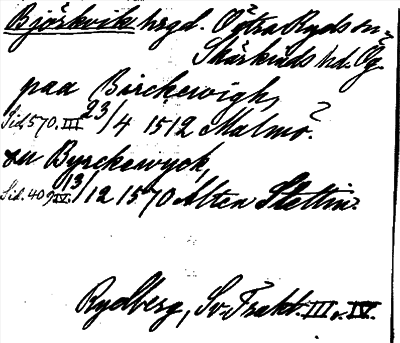 Björkvik hrgd. Östra Ryds sn
Skärkinds hd. Ög.
paa Birckewigh,
Sid. 570. III 23/4 1512 Malmö?
zu Byrckewyck,
Sid. 409 IV. 13/12 1570 Alten Stettin.
Rydberg, Sv. Trakt. III o. IV.